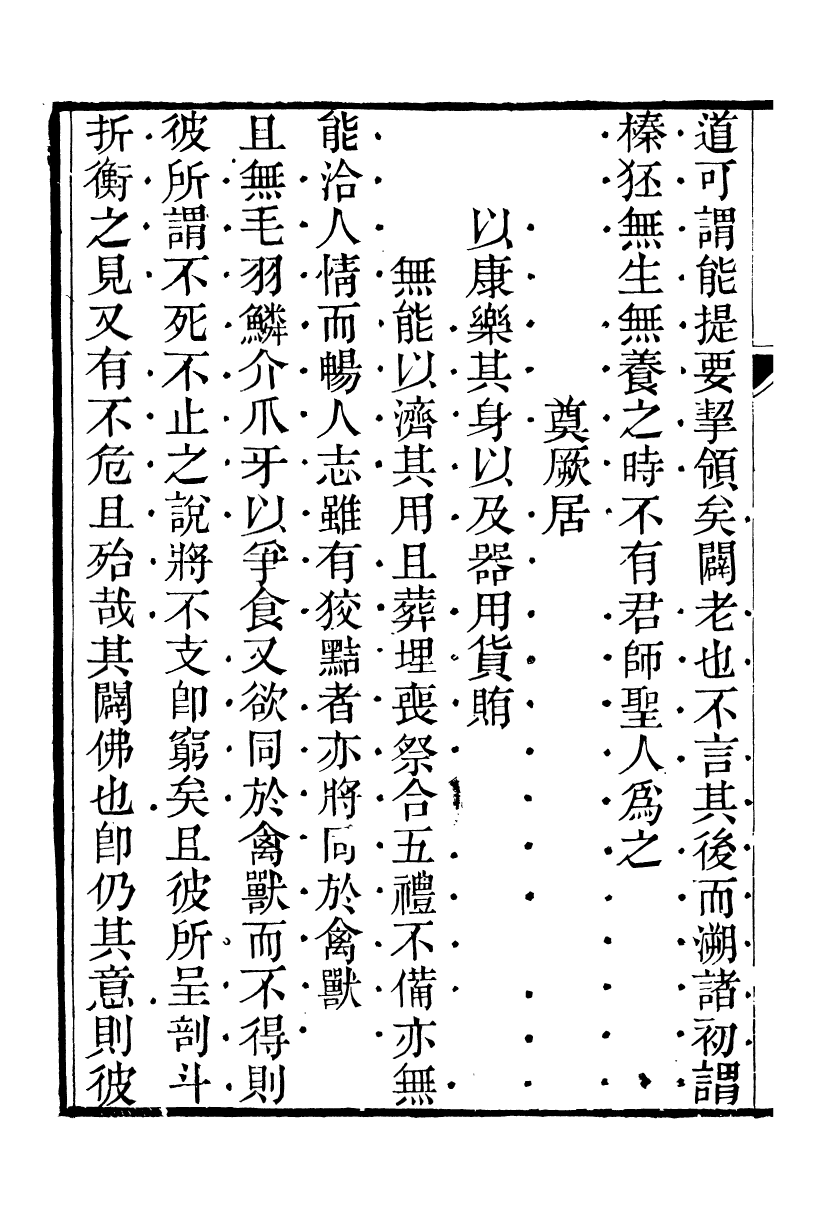 道可謂能提要挈領矣闢老也不言其後而溯諸初謂
榛狉無生無養之時不有君師聖人爲之
奠厥居
以康樂其身以及器用貨賄
無能以濟其用且葬埋喪祭合五禮不備亦無
能洽人情而暢人志雖有狡黠者亦將同於禽獸
且無毛羽鱗介爪牙以爭食又欲同於禽獸而不得則
彼所謂不死不止之說將不支卽窮矣且彼所呈剖斗
折衡之見又有不危且殆哉其闢佛也卽仍其意則彼